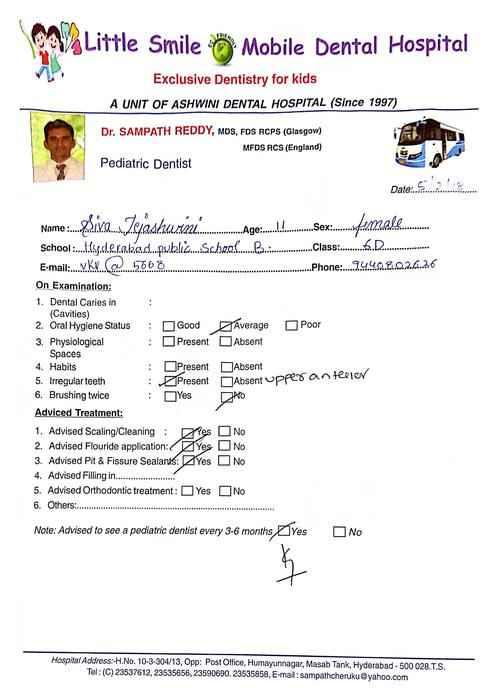 Little Smile Mobile Dental Hospital
Exclusive Dentistry for kids
A UNIT OF ASHWINI DENTAL HOSPITAL (Since 1997)
Dr. SAMPATH REDDY, MDS, FDS RCPS (Glasgow)
MFDS RCS (England)
Pediatric Dentist
Date: 5/2/18
Name: Siva Tejashwini Age: 11 Sex: female
School: Hyderabad public School B. Class: 6D
E-mail: VKV @ 5668 Phone: 9440802626
On Examination:
1. Dental Caries in :
(Cavities)
2. Oral Hygiene Status : Good Average Poor
3. Physiological : Present Absent
Spaces
4. Habits : Present Absent
5. Irregular teeth : Present Absent upper anterior
6. Brushing twice : Yes No
Adviced Treatment:
1. Advised Scaling/Cleaning : Yes No
2. Advised Flouride application: Yes No
3. Advised Pit & Fissure Sealants: Yes No
4. Advised Filling in
5. Advised Orthodontic treatment : Yes No
6. Others:
Note: Advised to see a pediatric dentist every 3-6 months Yes No
Hospital Address:-H.No. 10-3-304/13, Opp: Post Office, Humayunnagar, Masab Tank, Hyderabad - 500 028.T.S.
Tel : (C) 23537612, 23535656, 23590690. 23535858, E-mail : sampathcheruku@yahoo.com